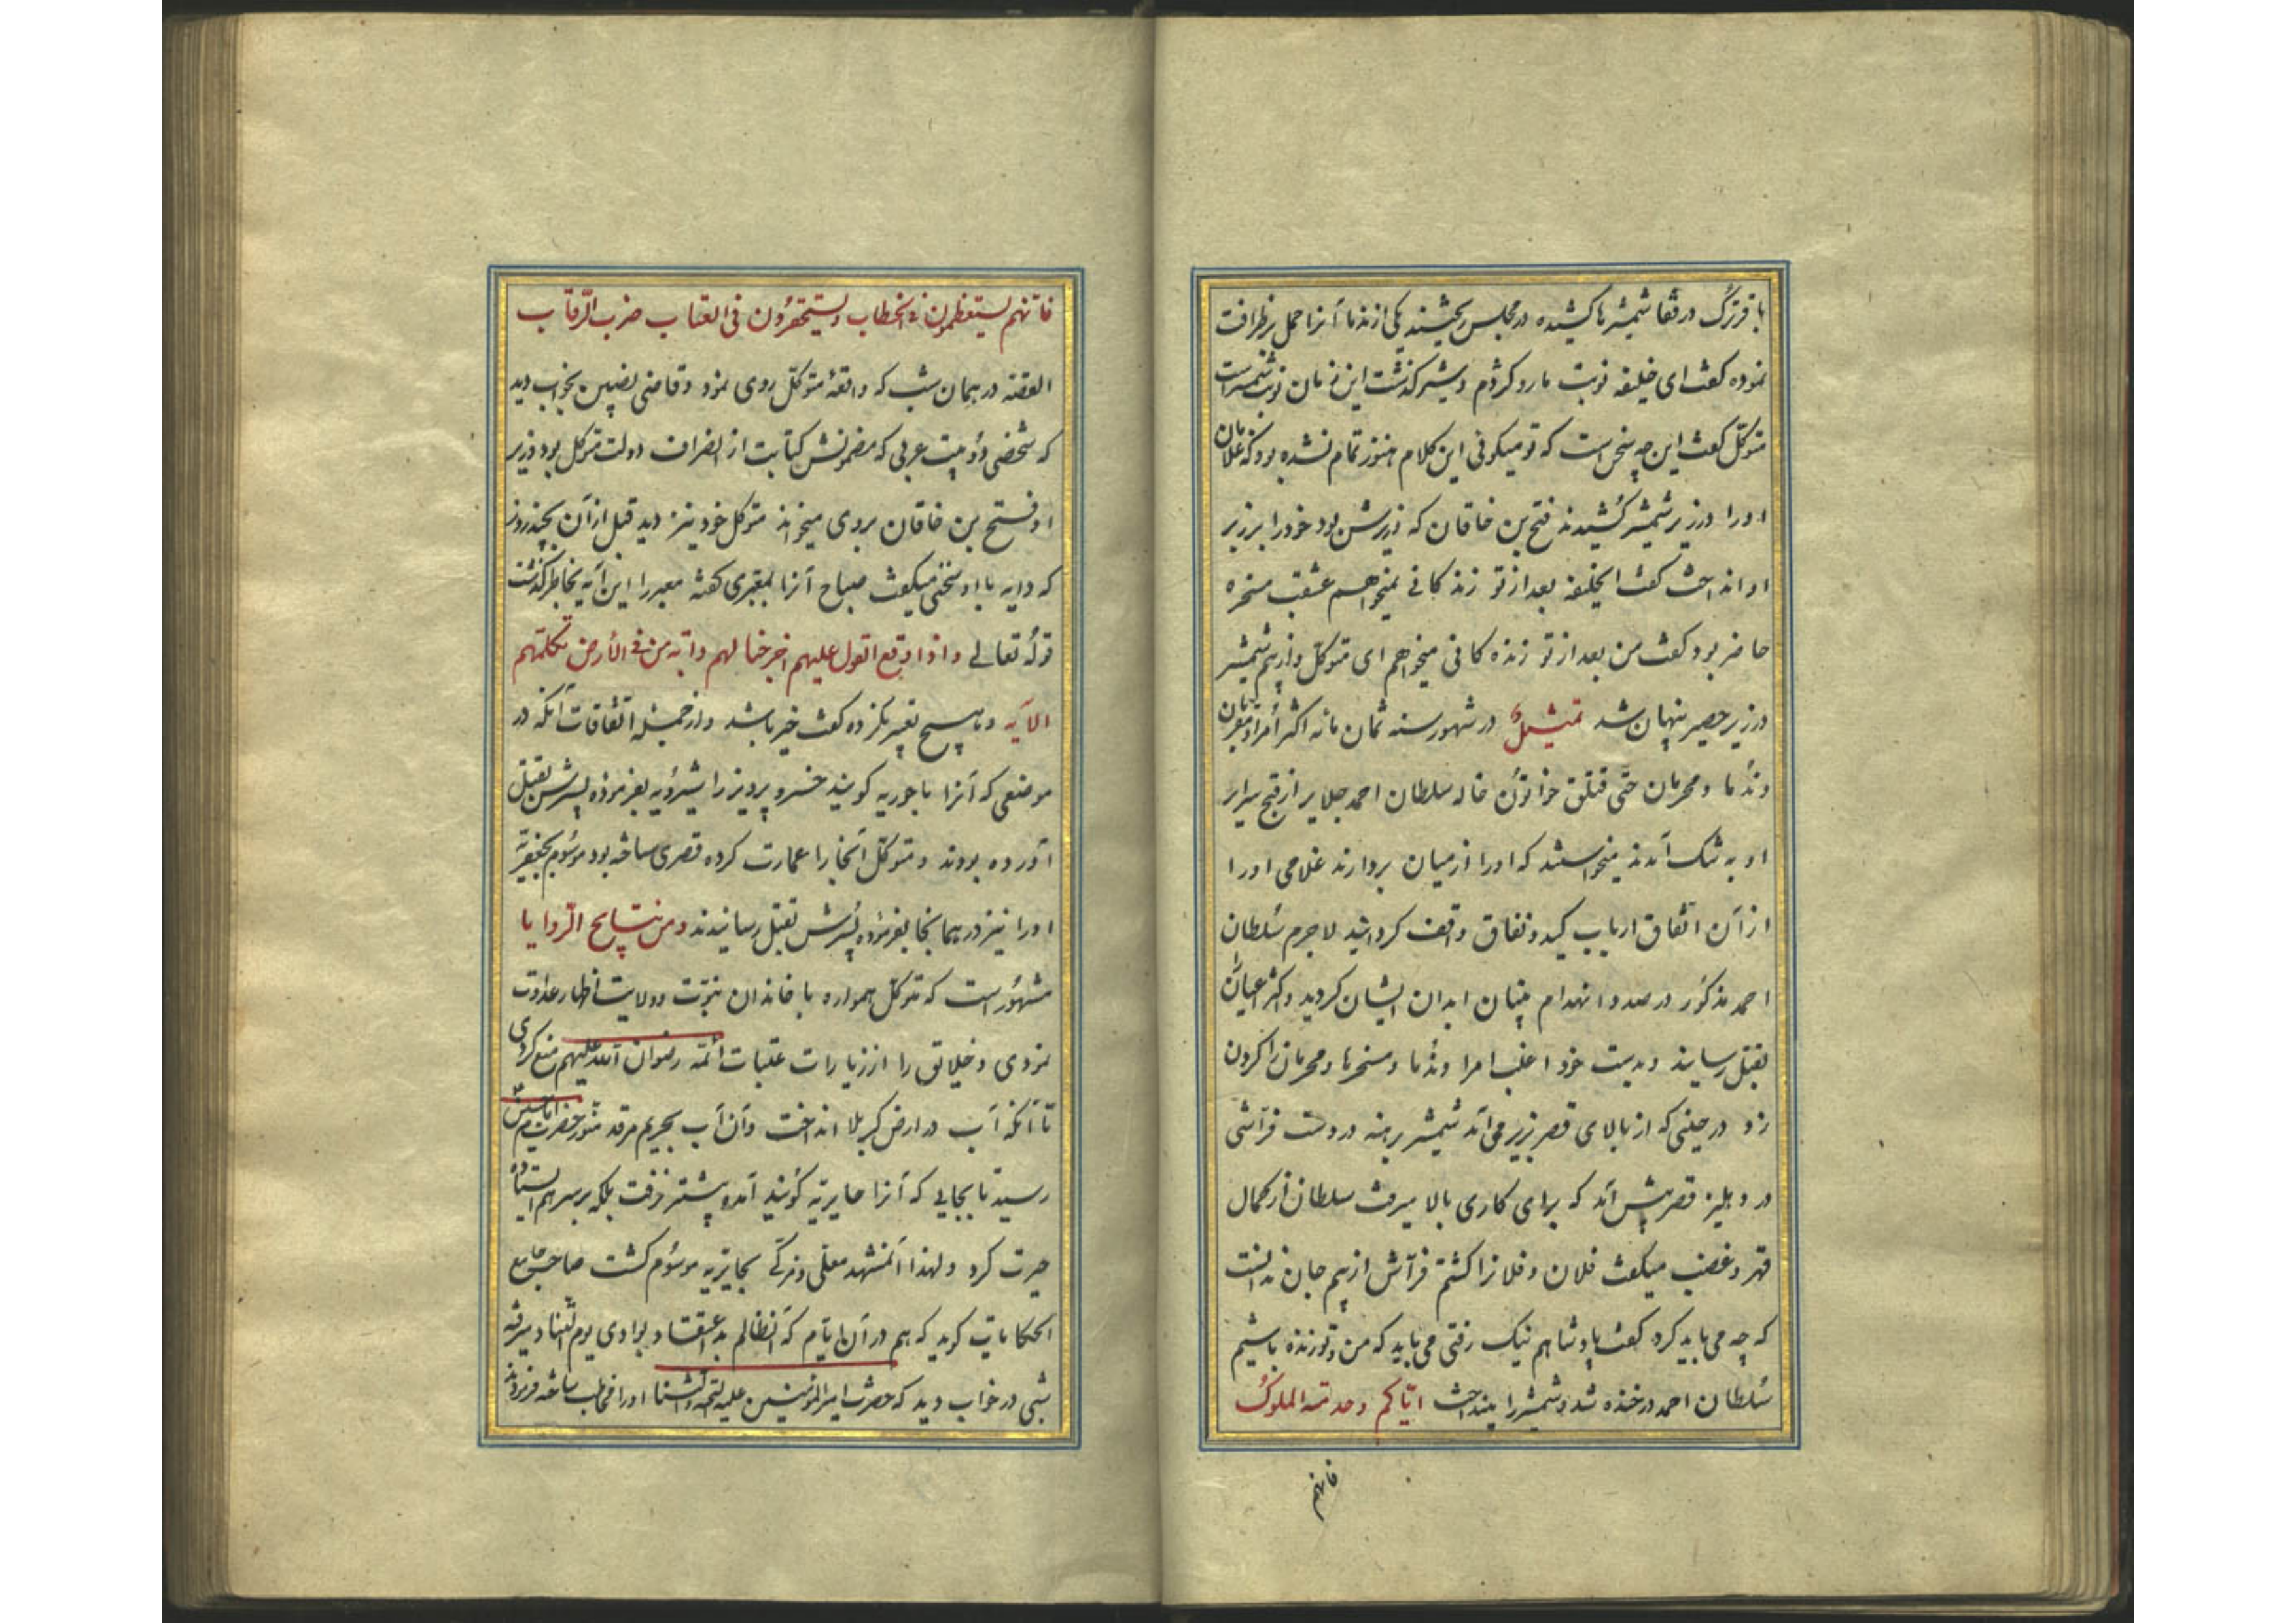 با قرترک در قفا شمشیرها کشیده در مجلس ریختند یکی از ندما آنرا حمل بر ظرافت
نموده کفت ای خلیفه نوبت مار و کژدم و شیر کذشت این زمان نوبت شمشیراست
متوکل کفت این چه سخن است که تو میکوئی این کلام هنوز تمام نشده بود که غلامان
او را در زیر شمشیر کشیدند فتح بن خاقان که وزیرش بود خود را بر زبر
او انداخت کفت ایخلیفه بعد از تو زندکانی نمیخواهم عشقب مسخره
حاضر بود کفت من بعد از تو زنده کانی میخواهم ای متوکل و از بیم شمشیر
در زیر حصیر پنهان شد تمثیل در شهور سنه ثمان مائه اکثر امرا و مقربان
و ندما و محرمان حتی قتلق خواتون خاله سلطان احمد جلایر از قبح سرایر
او به تنک آمدند میخواستند که او را از میان بردارند غلامی او را
از آن اتفاق ارباب کید و نفاق واقف کردانید لاجرم سلطان
احمد مذکور در صدد انهدام بنیان ابدان ایشان کردید و اکثر اعیان را
بقتل رسانید و بدست خود اغلب امرا و ندما و مسخرها و محرمان را کردن
زد در حینی که از بالای قصر بزیر می آمد شمشیر برهنه در دست فراشی
در دهلیز قصر پیش آمد که برای کاری بالا میرفت سلطان از کمال
قهر و غضب میکفت فلان و فلانرا کشتم فراش از بیم جان ندانست
که چه می باید کرد کفت پادشاهم نیک رفتی می باید که من و تو زنده باشیم
سلطان احمد در خنده شد و شمشیر را بینداخت ایاکم وحدته الملوک
فانهم
فانهم یستعظمون فی الخطاب و یستحقرون فی العتاب ضرب الرقاب
القصه در همان شب که واقعه متوکل روی نمود و قاضی نصیبین بخواب دید
که شخصی دو بیت عربی که مضمونش کتابت از انصراف دولت متوکل بود وزیر
او فتح بن خاقان بروی میخواند متوکل خود نیز دید قبل از آن بچند روز
که دابه با او سخن میکفت صباح آنرا بمعبری کفته معبر را این آیه بخاطر کذشت
قوله تعالی واذا وقع القول علیهم اخرجنا لهم دابة من فی الأرض تکلمهم
الآیه و هیچ تعبیر نکرده کفت خیر باشد و از جمله اتفاقات آنکه در
موضعی که آنرا ماحوریه کویند خسرو پرویز را شیرویه بفرموده پسرش بقتل
آورده بودند و متوکل آنجا را عمارت کرده قصری ساخته بود موسوم بجعفریه
او را نیز در همانجا بفرموده پسرش بقتل رسانیدند و من نتایج الرویا
مشهور است که متوکل همواره با خاندان نبوت و ولایت اظهار عداوت
نمودی و خلایق را از زیارات عتبات ائمه رضوان الله علیهم منع کردی
تا آنکه آب در ارض کربلا انداخت و آن آب بحریم مرقد منور حضرت امام حسین
رسید تا بجایی که آنرا حایریه کویند آمده پیشتر نرفت بلکه بر سر هم ایستاده
حیرت کرد و لهذا آنمشهد معلی و مزکی بحایریه موسوم کشت صاحب جامع
الحکایات کوید که هم در آن ایام که آنظالم بد اعتقاد بوادی یوم التناد میرفته
شبی در خواب دید که حضرت امیرالمؤمنین علیه التحیة والثنا او را مخاطب ساخته فرمودند